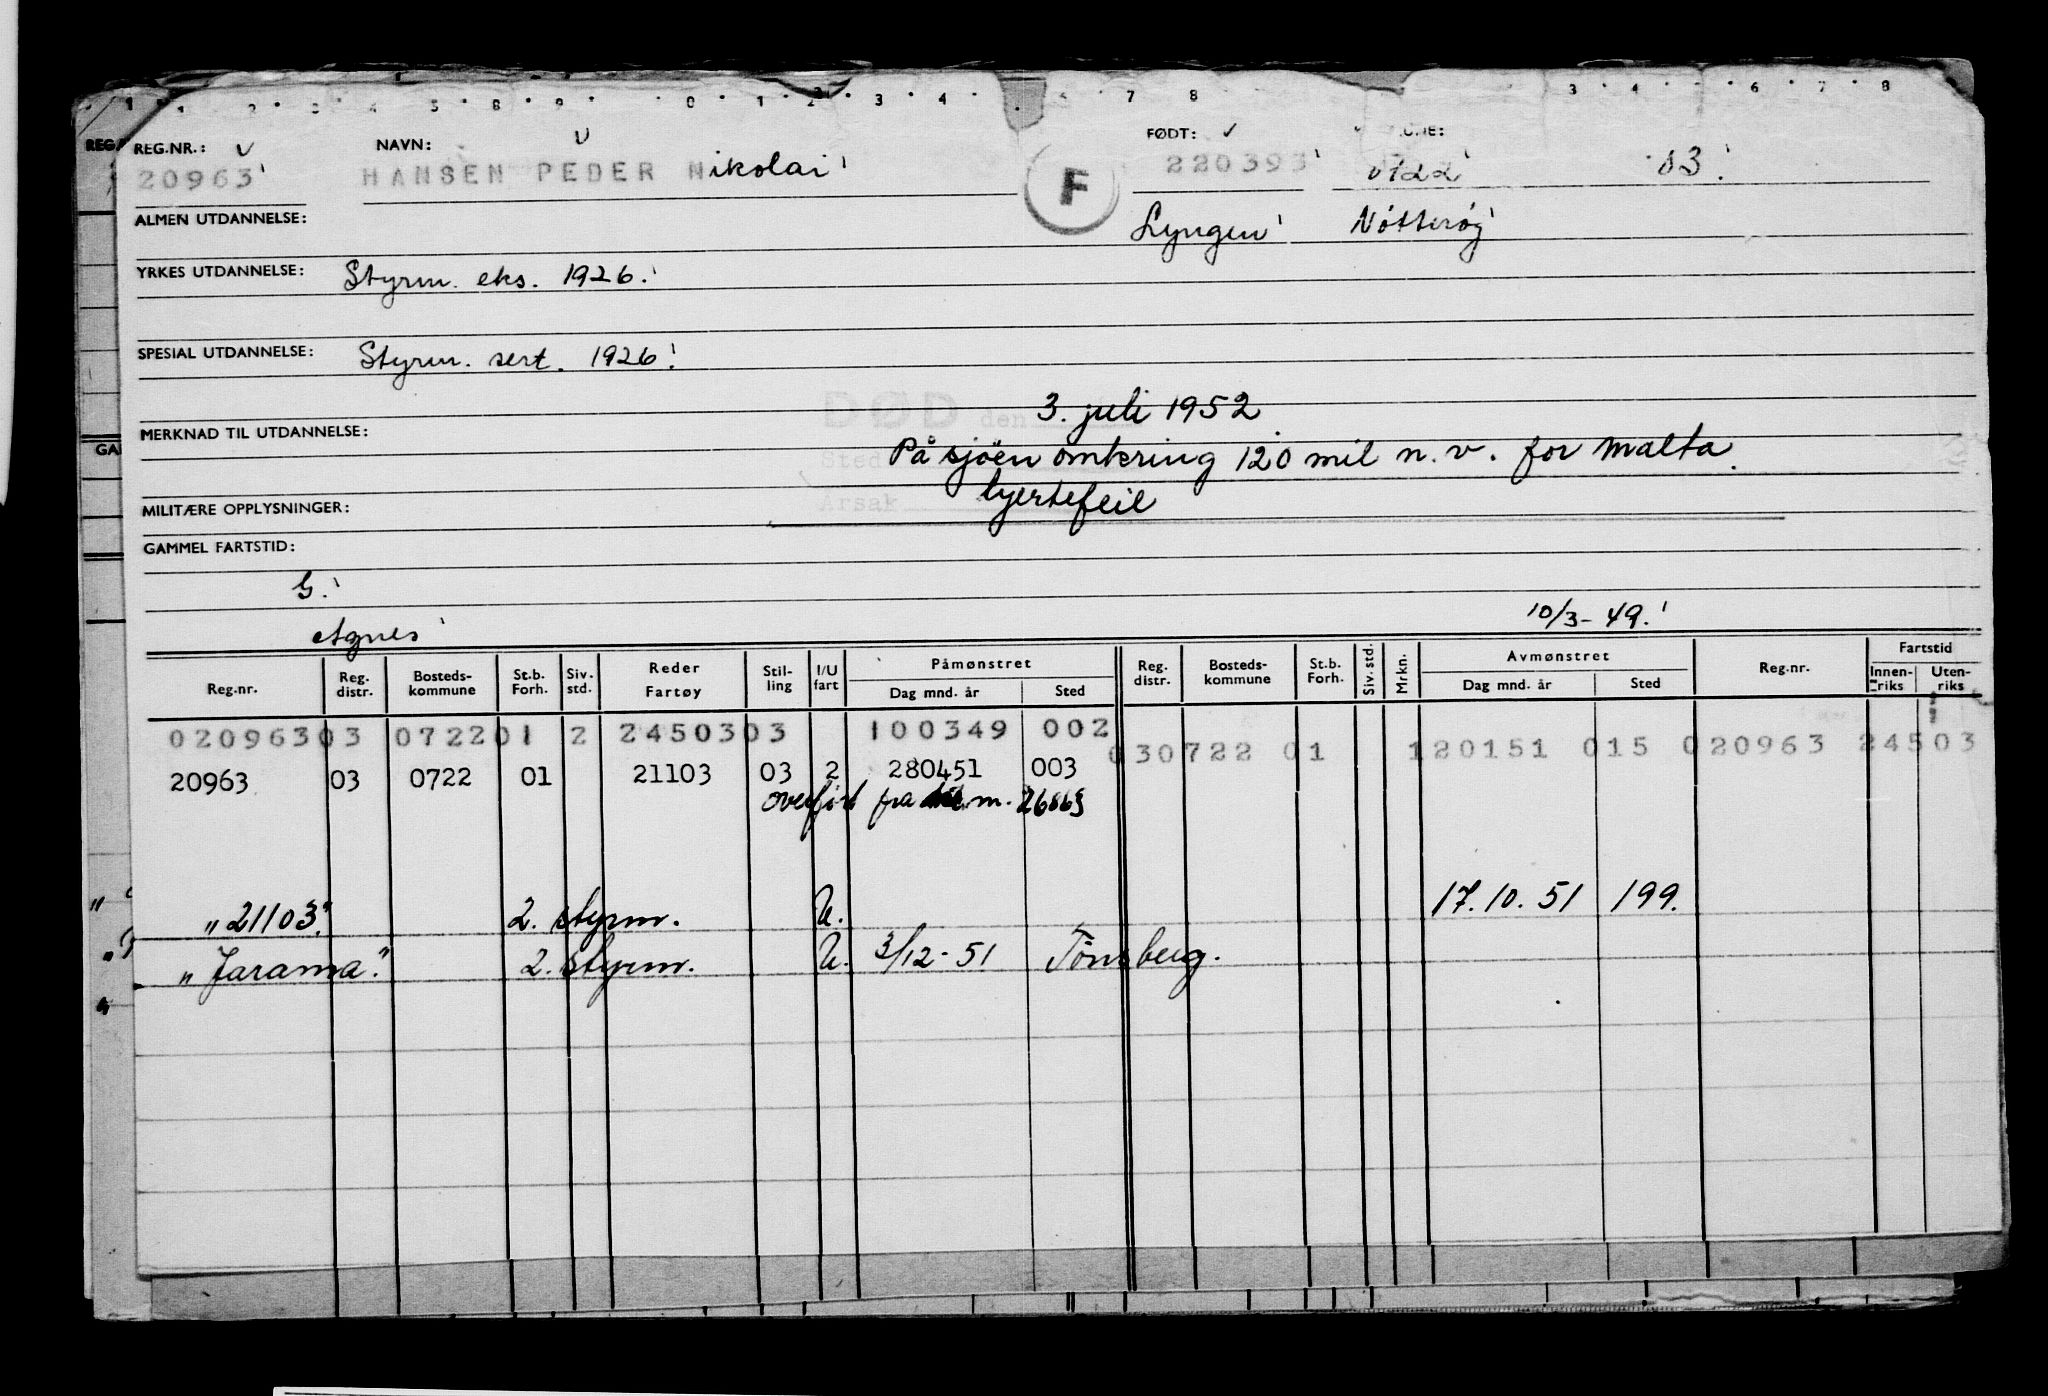 REG.NR.: v NAVN: v FØDT: v
20963' HANSEN PEDER Nikolai' F 220393' 0722' 03'
ALMEN UTDANNELSE: Lyngen' Nötteröy'
YRKES UTDANNELSE: Styrm. eks. 1926.'
SPESIAL UTDANNELSE: Styrm. sert. 1926.'
DØD den 3. juli 1952.
MERKNAD TIL UTDANNELSE:
Sted På sjöen omkring 120 mil n.v. for Malta.
Årsak hjertefeil
MILITÆRE OPPLYSNINGER:
GAMMEL FARTSTID:
G.'
Agnes' 10/3-49.'
Reg.nr. Reg. distr. Bosteds-kommune St.b. Forh. Siv. std. Reder Fartøy Stil-ling I/U fart Påmønstret Dag mnd. år Sted Reg. distr. Bosteds-kommune St.b. Forh. Siv. std. Mrkn. Avmønstret Dag mnd. år Sted Reg.nr. Fartstid Innen-riks Uten-riks
020963 03 0722 01 2 24503 03 100349 002 03 0722 01 120151 015 020963 24503
20963 03 0722 01 21103 03 2 280451 003
overfört fra m. 26863
"21103." 2. styrm. U. 17.10.51 199.
"Jarama." 2. styrm. U. 3/12-51 Tönsberg.